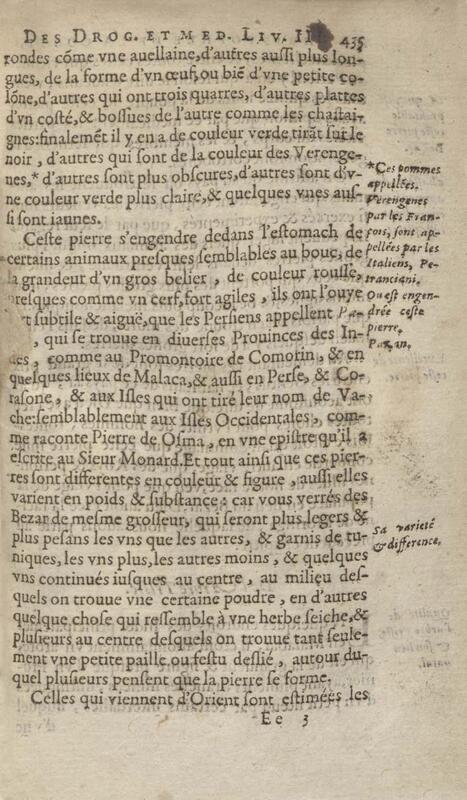 DES DROG. ET MED. LIV. II 435
rondes cõme vne auellaine, d'autres aussi plus lon-
gues, de la forme d'vn œuf, ou biẽ d'vne petite co-
lõne, d'autres qui ont trois quarres, d'autres plattes
d'vn costé, & bossues de l'autre comme les chastai-
gnes: finalemẽt il y en a de couleur verde tirãt sur le
noir, d'autres qui sont de la couleur des Verenge-
nes,* d'autres sont plus obscures, d'autres sont d'v-
ne couleur verde plus claire, & quelques vnes aus-
si sont iaunes.
*Ces pommes
appellées.
Verengenes
par les Fran-
çois, sont ap-
pellées par les
Italiens, Pe-
tranciani.
Ceste pierre s'engendre dedans l'estomach de
certains animaux presques semblables au bouc, de
la grandeur d'vn gros belier, de couleur rousse,
presques comme vn cerf, fort agiles, ils ont l'ouye
subtile & aiguë, que les Persiens appellent Pa-
, qui se trouue en diuerses Prouinces des In-
des, comme au Promontoire de Comorin, & en
quelques lieux de Malaca, & aussi en Perse, & Co-
rasone, & aux Isles qui ont tiré leur nom de Va-
che: semblablement aux Isles Occidentales, com-
me raconte Pierre de Osma, en vne epistre qu'il a
escrite au Sieur Monard. Et tout ainsi que ces pier-
res sont differentes en couleur & figure, aussi elles
varient en poids & substance: car vous verrés des
Bezar de mesme grosseur, qui seront plus legers &
plus pesans les vns que les autres, & garnis de tu-
niques, les vns plus, les autres moins, & quelques
vns continués iusques au centre, au milieu des-
quels on trouue vne certaine poudre, en d'autres
quelque chose qui ressemble à vne herbe seiche, &
plusieurs au centre desquels on trouue tant seule-
ment vne petite paille ou festu deslié, autour du-
quel plusieurs pensent que la pierre se forme.
Ou est engen-
drée ceste
pierre.
Pazan.
Sa varieté
& difference.
Celles qui viennent d'Orient sont estimées les
Ee 3